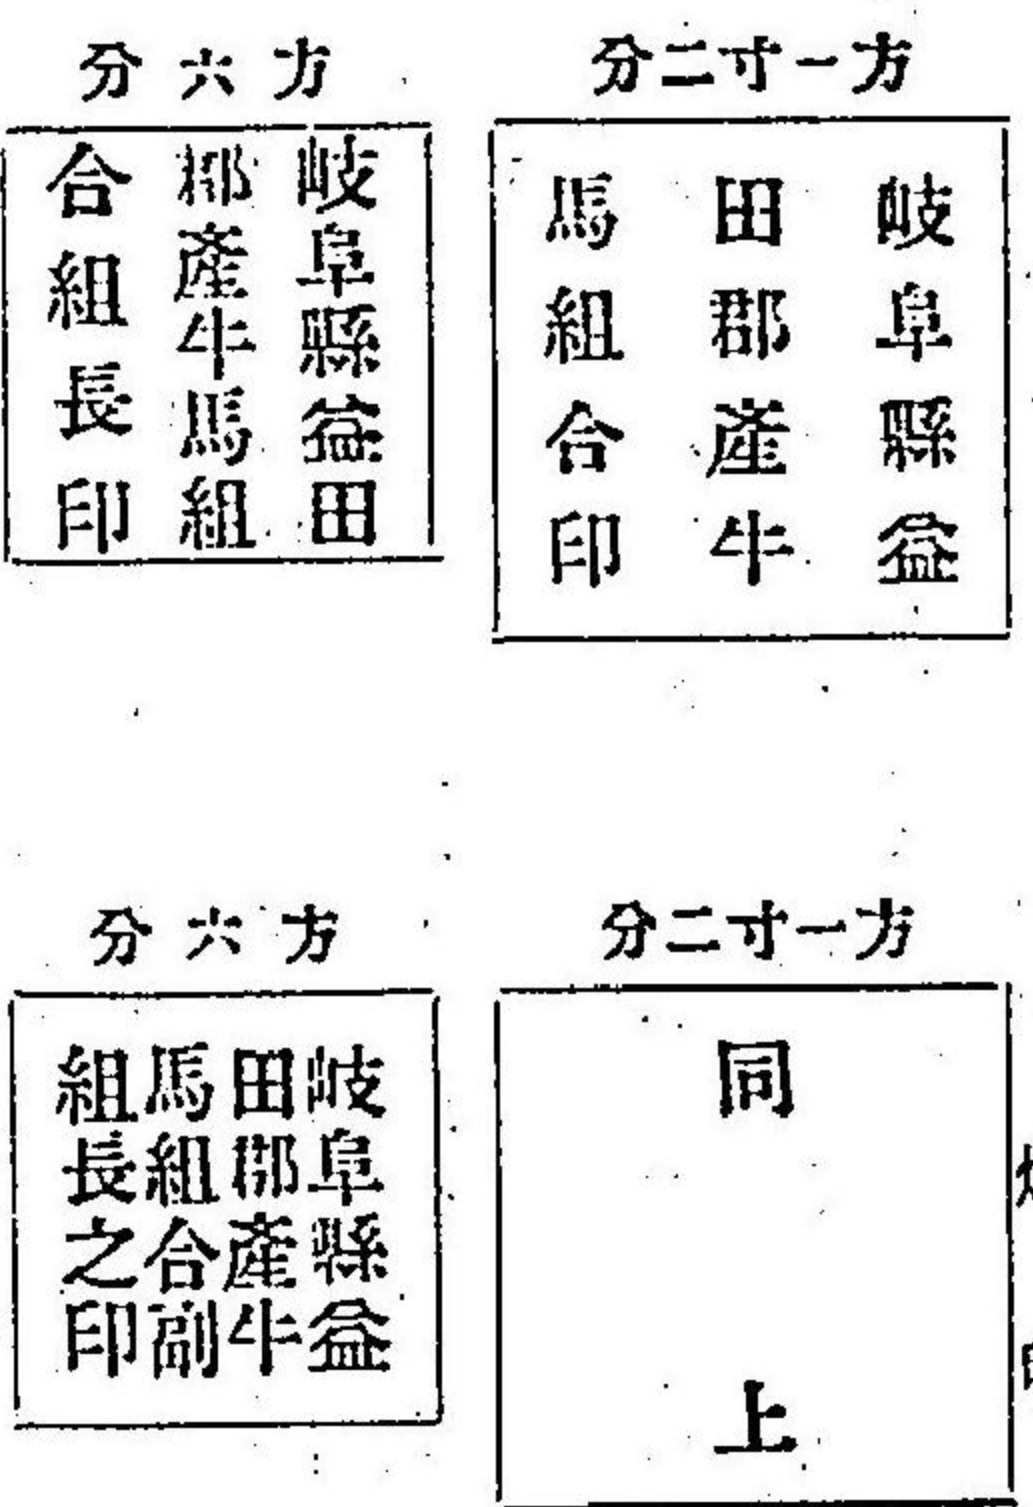 方一寸二分
岐阜縣益
田郡產牛
馬組合印
方六分
岐阜縣益田
郡產牛馬組
合組長印
方一寸二分
同上
方六分
岐阜縣益
田郡產牛
馬組合副
組長之印